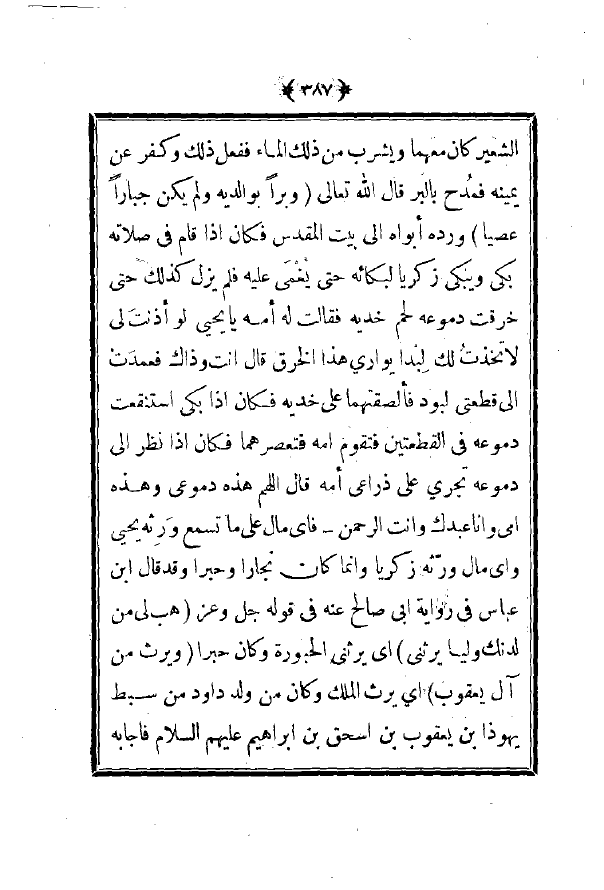 ﴿ ٣٨٧ ﴾
الشعير كان معهما ويشرب من ذلك الماء ففعل ذلك وكفر عن
يمينه فمُدح بالبر قال الله تعالى ( وبراً بوالديه ولم يكن جباراً
عصيا ) ورده أبواه الى بيت المقدس فكان اذا قام فى صلاته
بكى ويبكى زكريا لبكائه حتى يُغْمَى عليه فلم يزل كذلك حتى
خرقت دموعه لحم خديه فقالت له أمه يا يحيى لو أذنتَ لى
لاتخذتُ لك لِبْدا يوارى هذا الخرق قال انت وذاك فعمدَتْ
الى قطعتى لبود فألصقتهما على خديه فكان اذا بكى استنقعت
دموعه فى القطعتين فتقوم امه فتعصرهما فكان اذا نظر الى
دموعه تجري على ذراعى أمه قال اللهم هذه دموعى وهذه
امى وانا عبدك وانت الرحمن ـ فاى مال على ما تسمع وَرِثه يحيى
واى مال ورّثه زكريا وانما كان نجارا وحبرا وقد قال ابن
عباس فى رواية ابى صالح عنه فى قوله جل وعز ( هب لى من
لدنك وليا يرثنى ) اى يرثنى الحبورة وكان حبرا ( ويرث من
آل يعقوب ) اي يرث الملك وكان من ولد داود من سبط
يهوذا بن يعقوب بن اسحق بن ابراهيم عليهم السلام فاجابه